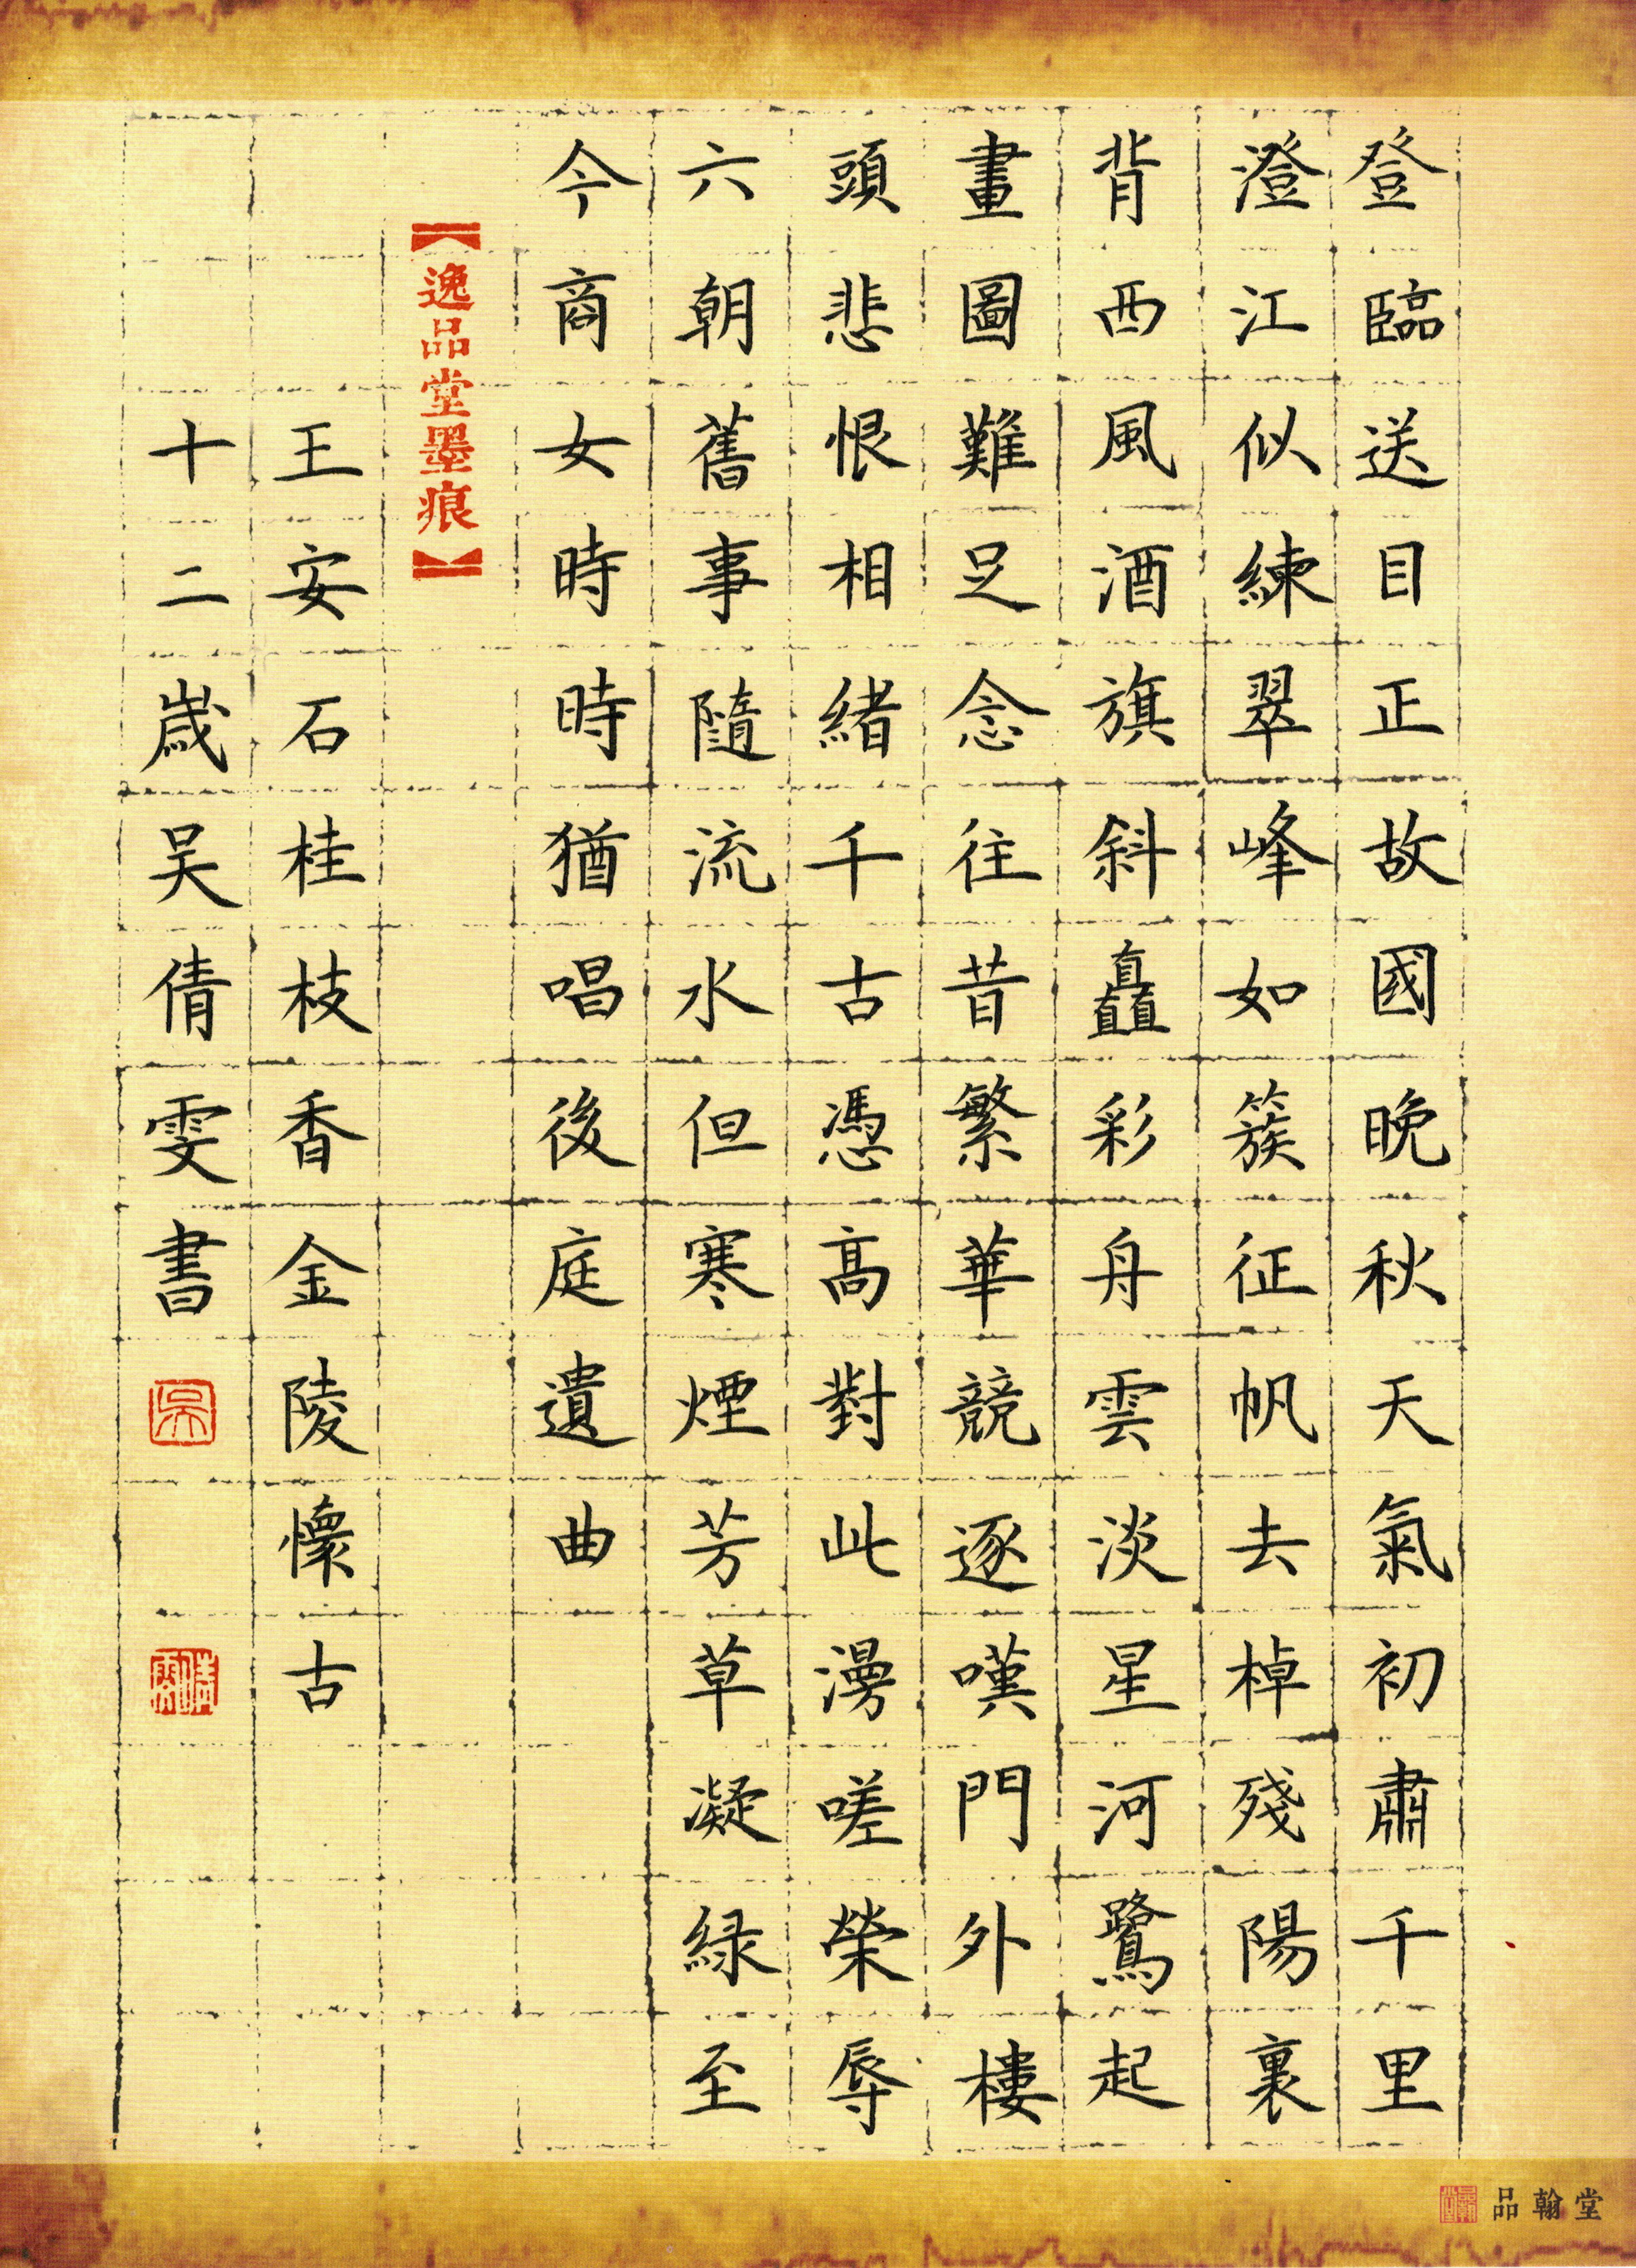 登臨送目正故國晚秋天氣初肅千里
澄江似練翠峰如簇征帆去棹殘陽裏
背西風酒旗斜矗彩舟雲淡星河鷺起
畫圖難足念往昔繁華競逐嘆門外樓
頭悲恨相緒千古憑高對此漫嗟榮辱
六朝舊事隨流水但寒煙芳草凝緑至
今商女時時猶唱後庭遺曲
【逸品堂墨痕】
王安石桂枝香金陵懷古
十二歲吴倩雯書
吴
倩雯
品翰堂